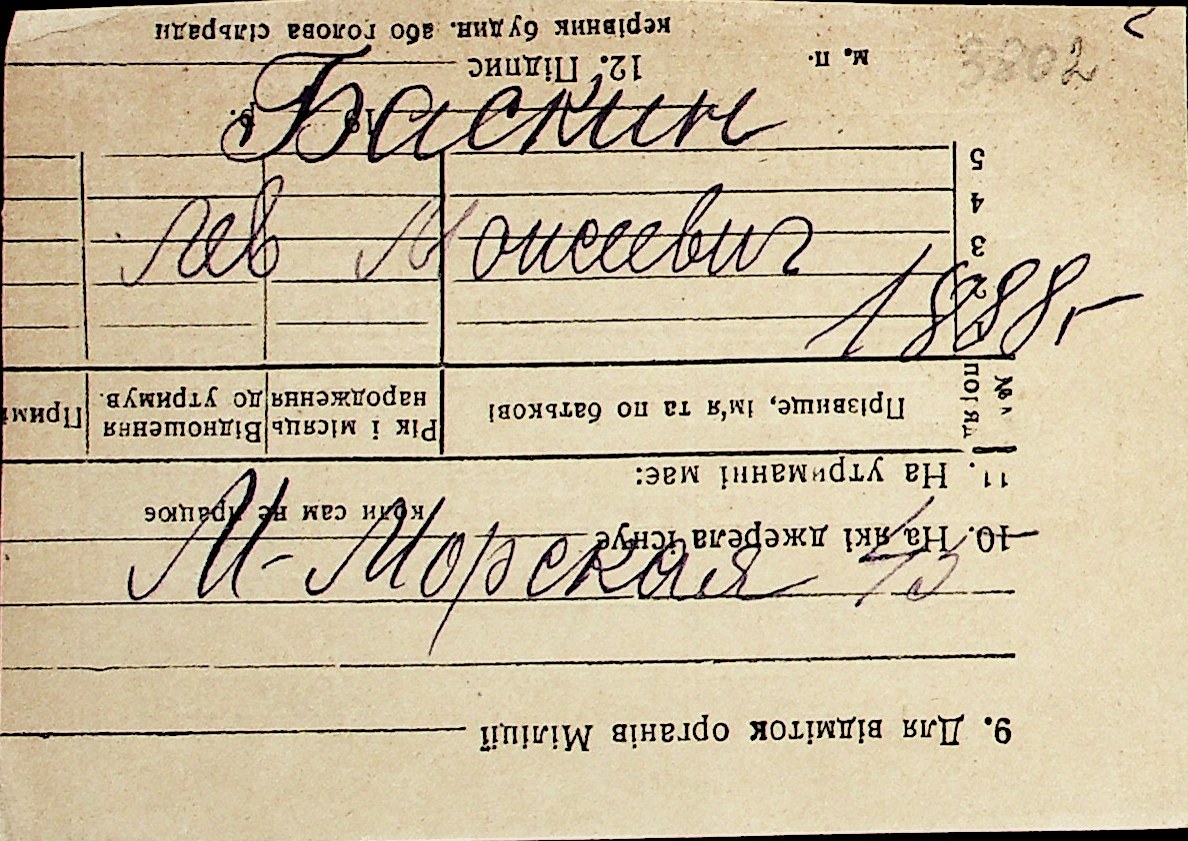 3802
Баскин
Лев Моисеевич
1888 г
М-Морская 45
9. Для відміток органів Міліції
10. На які джерела існує
коли сам не працює
11. На утриманні має:
№№ поряд
Прізвище, ім'я та по батькові
Рік і місяць народження
Відношення до утримув.
Примі
1
2
3
4
5
19 р.
12. Підпис
м. п.
керівник будин. або голова сільради